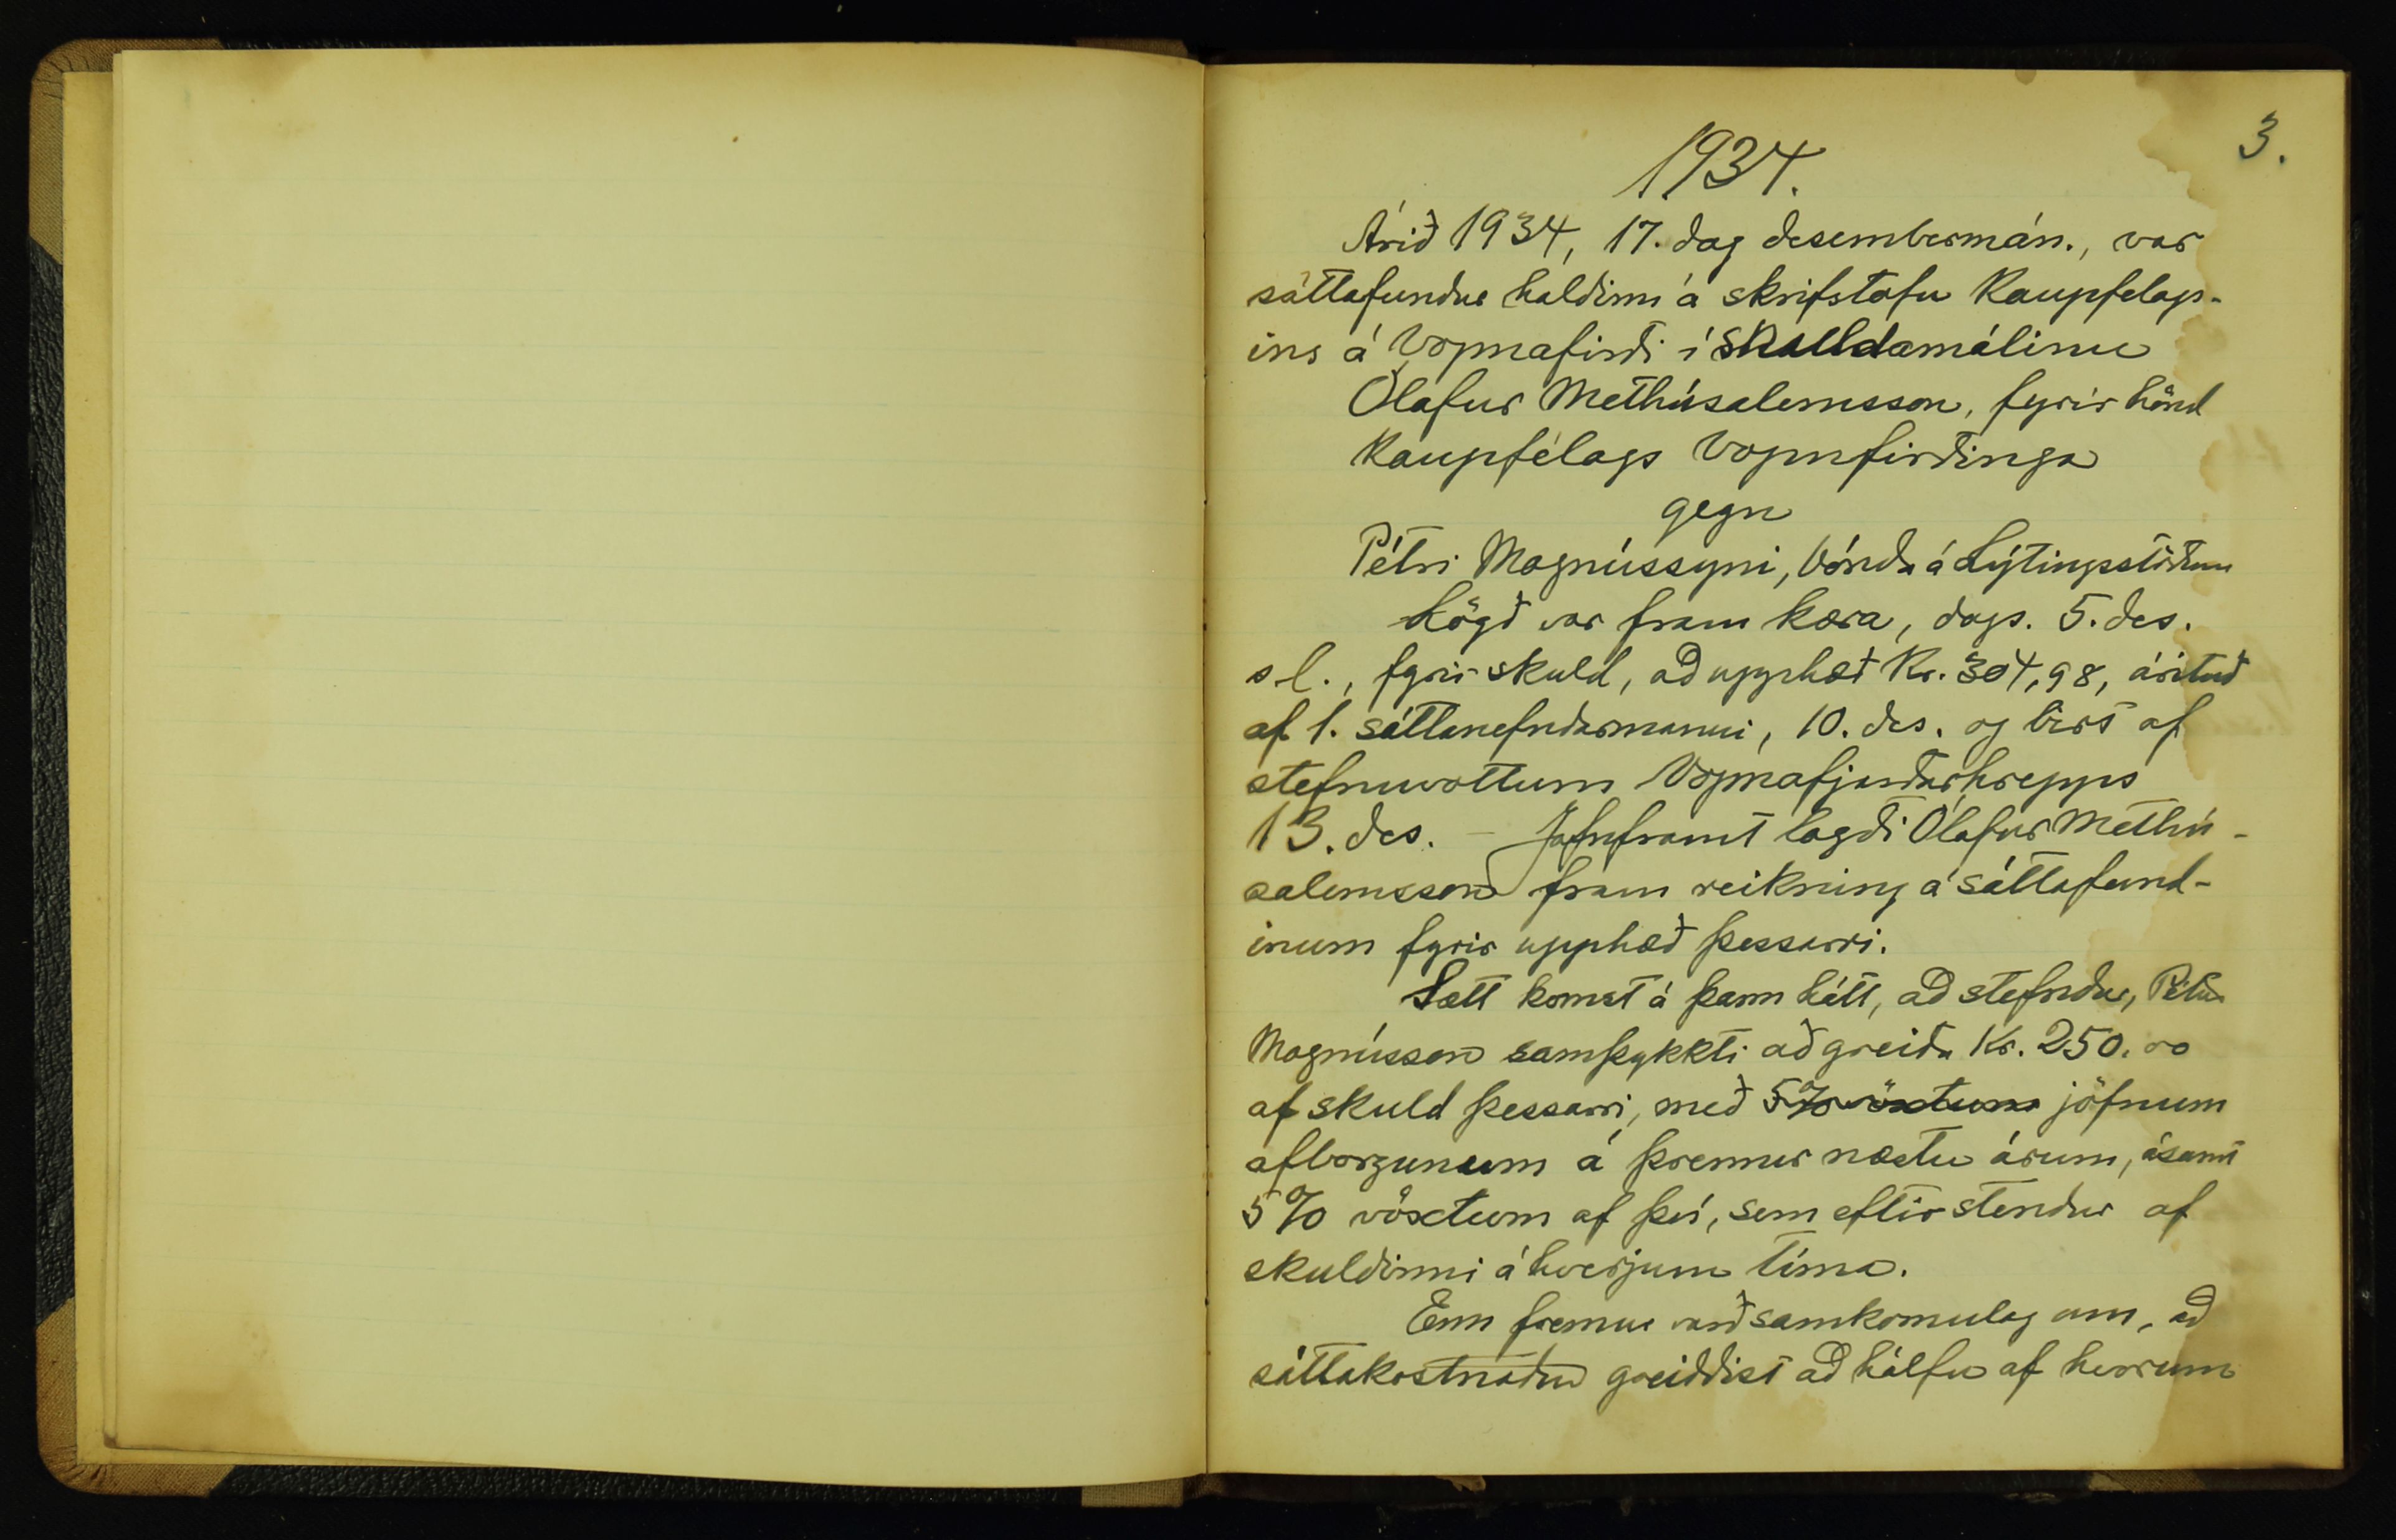 3.
1934.
Árið 1934, 17. dag desembermán., var
sáttafundur haldinn á skrifstofu Kaupfélags-
ins á Vopnafirði í skuldamálinu
Ólafur Methúsalemsson, fyrir hönd
Kaupfélags Vopnfirðinga
gegn
Pétri Magnússyni, bónda á Lýtingsstöðum
Lögð var fram kæra, dags. 5. des.
s.l., fyrir skuld, að upphæð Kr. 304,98, árituð
af 1. sáttanefndarmanni, 10. des. og birt af
stefnuvottum Vopnafjarðarhrepps
13. des. - Jafnframt lagði Ólafur Methú-
salemsson fram reikning á sáttafund-
inum fyrir upphæð þessarri.
Sætt komst á þann hátt, að stefndur, Pétur
Magnússon samþykkti að greiða Kr. 250.00
af skuld þessarri, með 5% vöxtum jöfnum
afborgunum á þremur næstu árum, ásamt
5% vöxtum af því, sem eftir stendur af
skuldinni á hverjum tíma.
Enn fremur varð samkomulag um, að
sáttakostnaður greiddist að hálfu af hvorum